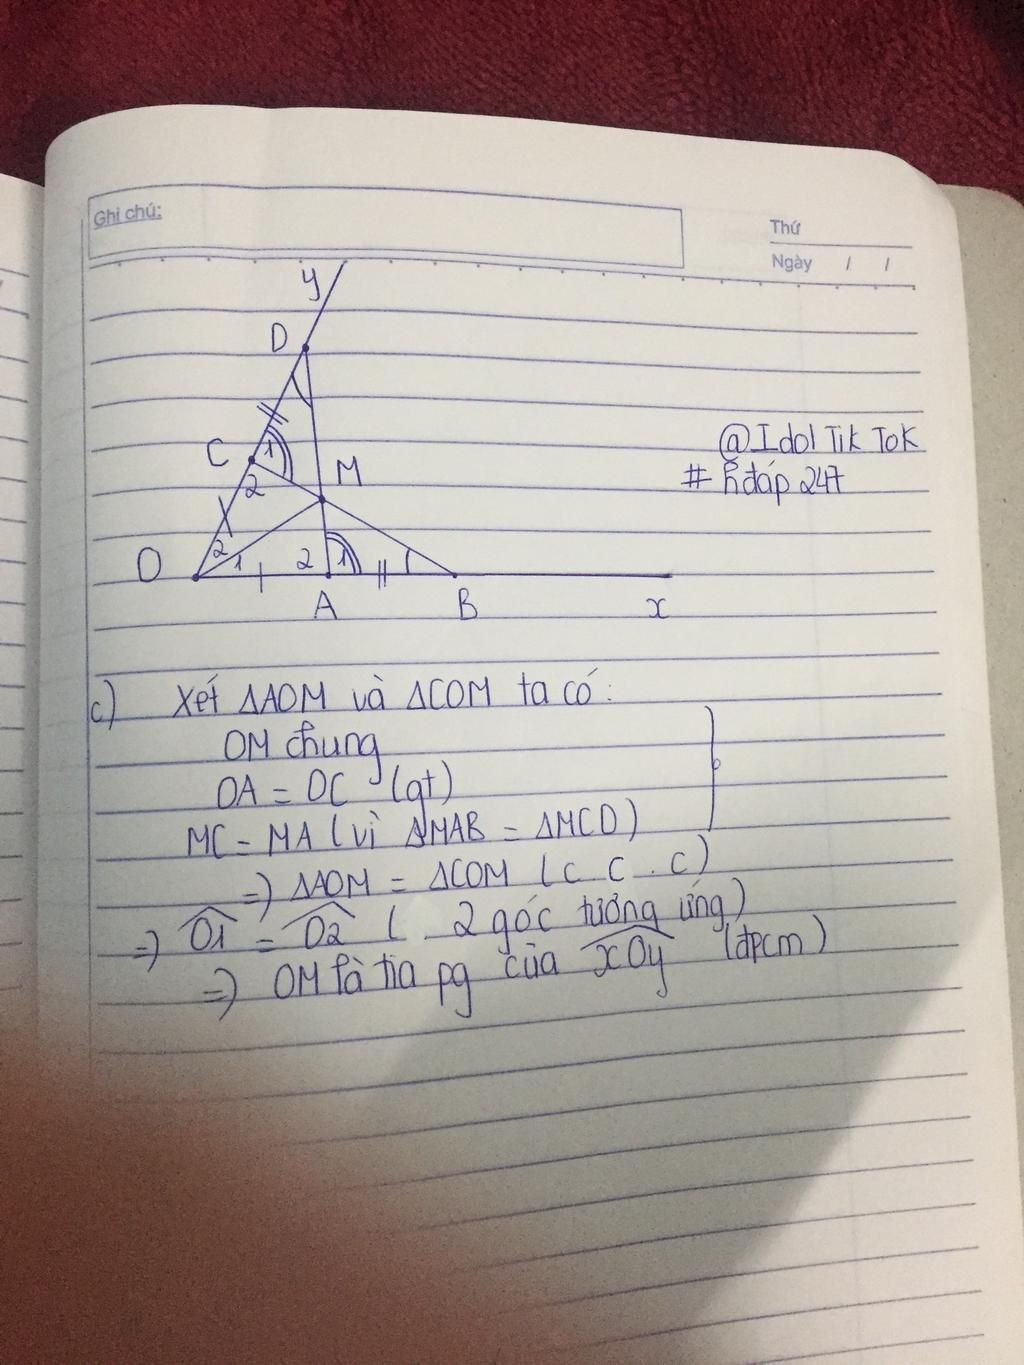 Ghi chú:
Thứ
Ngày / /
y
D
C
1
2
M
@Idol Tik Tok
# hđáp 247
O
2
1
2
1
A
B
x
c) Xét ΔAOM và ΔCOM ta có:
OM chung
OA = OC (gt)
MC = MA (vì ΔMAB = ΔMCD)
=) ΔAOM = ΔCOM (c c . c)
=) Ô1 = Ô2 ( . 2 góc tương ứng)
=) OM là tia pg của xÔy (đpcm)